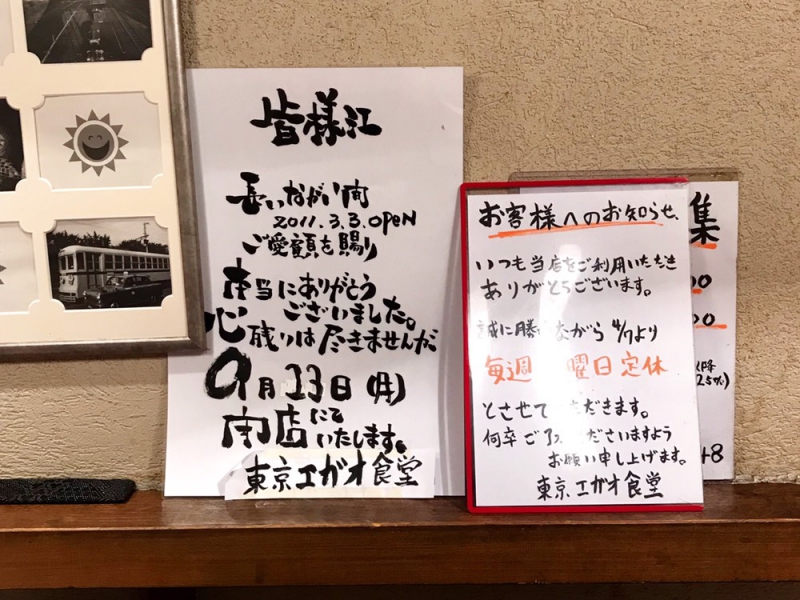 皆様江
長いながい間
2011.3.3.OPEN
ご愛顧を賜り
本当にありがとう
ございました。
心残りは尽きませんが
9月23日(月)
にて
閉店いたします。
東京エガオ食堂
お客様へのお知らせ、
いつも当店をご利用いただき
ありがとうございます。
誠に勝ながら 4/7より
毎週 曜日定休
とさせて ただきます。
何卒ご くださいますよう
お願い申し上げます。
東京エガオ食堂
集
00
00